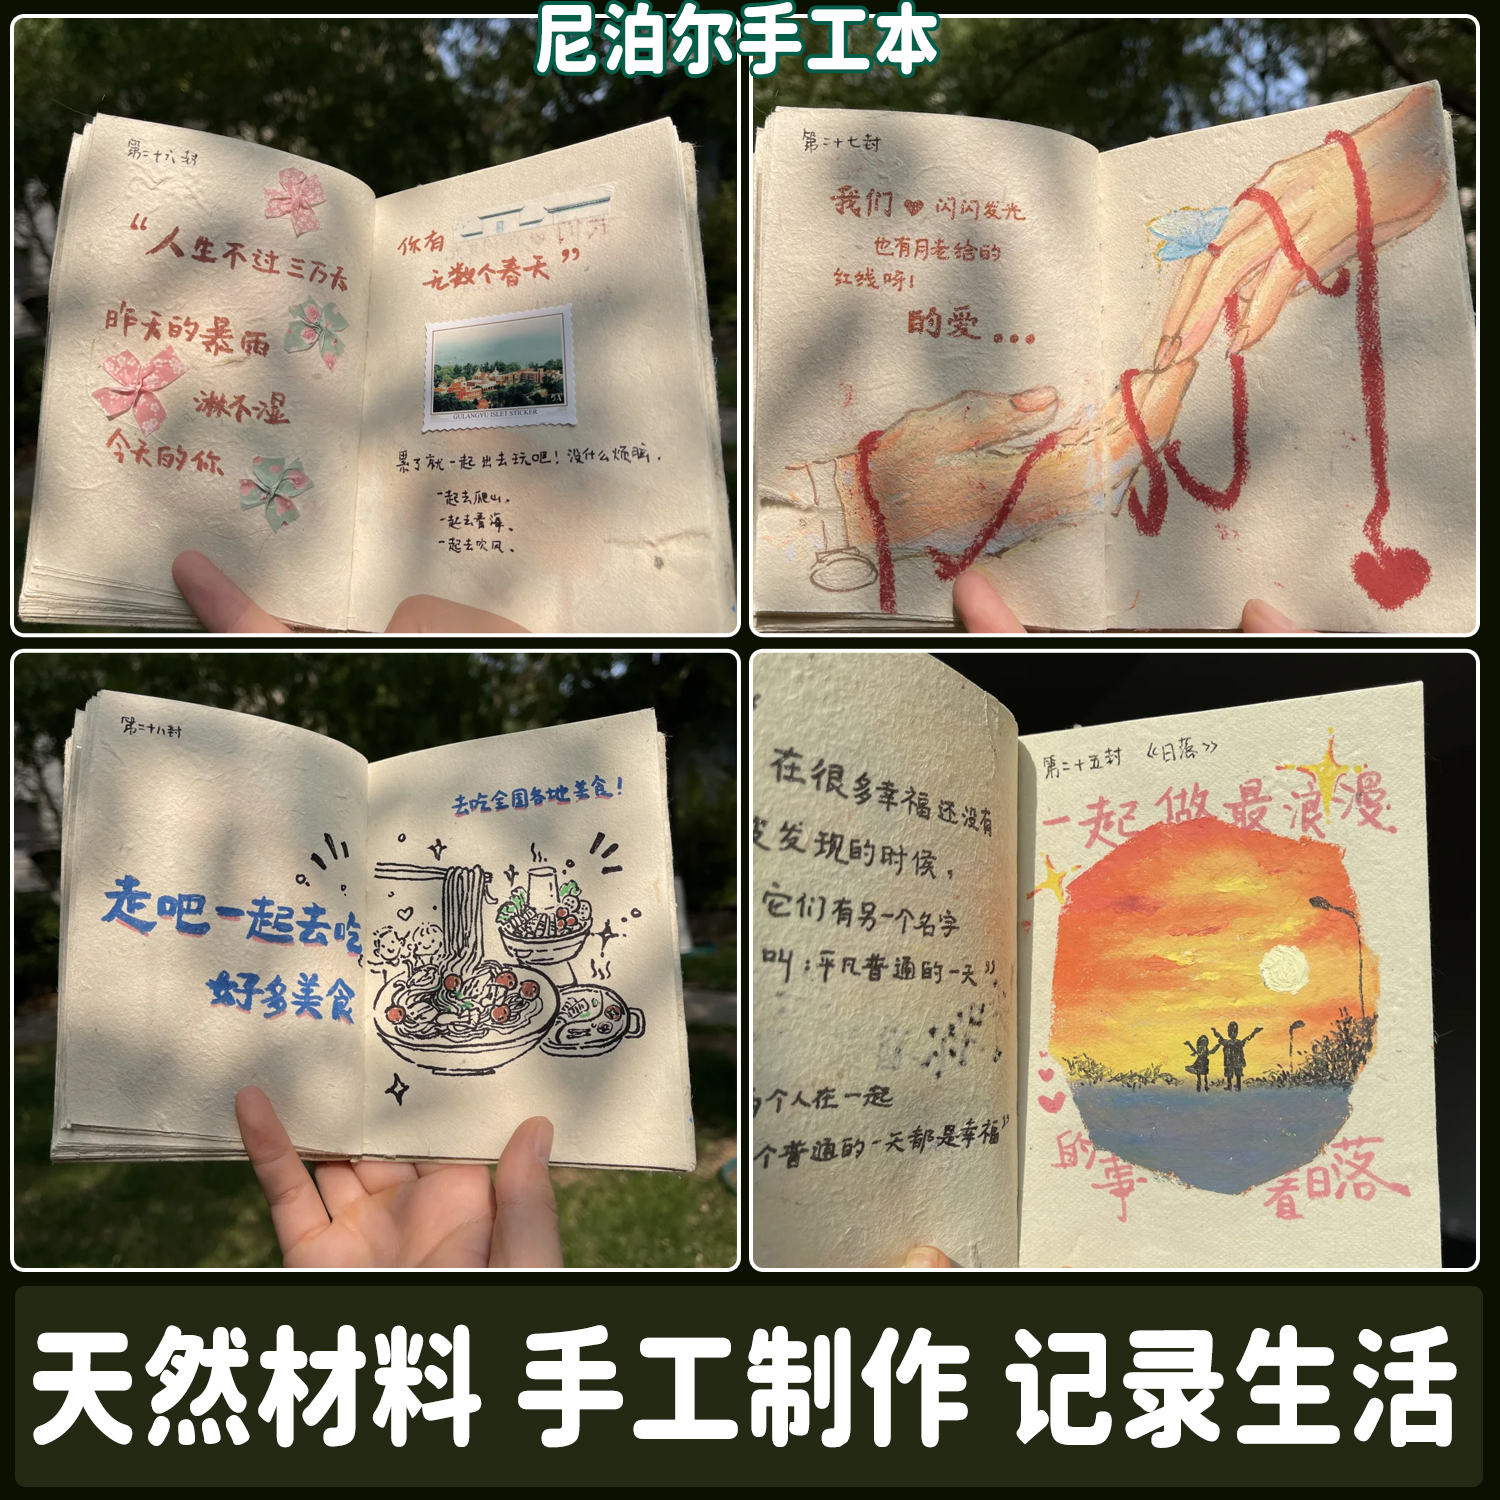 尼泊尔手工本
第二十六封
“人生不过三万天
昨天的暴雨
淋不湿
今天的你
你有
无数个春天”
GULANGYU ISLET STICKER
累了就一起出去玩吧！没什么烦脑．
一起去爬山，
一起去看海、
一起去吹风、
第二十七封
我们 闪闪发光
也有月老给的
红线呀！
的爱...
第二十八封
走吧一起去吃
好多美食
去吃全国各地美食！
在很多幸福还没有
发现的时候，
它们有另一个名字
叫：平凡普通的一天”
个人在一起
个普通的一天都是幸福”
第二十五封 《日落》
一起做最浪漫
的事
看日落
天然材料 手工制作 记录生活